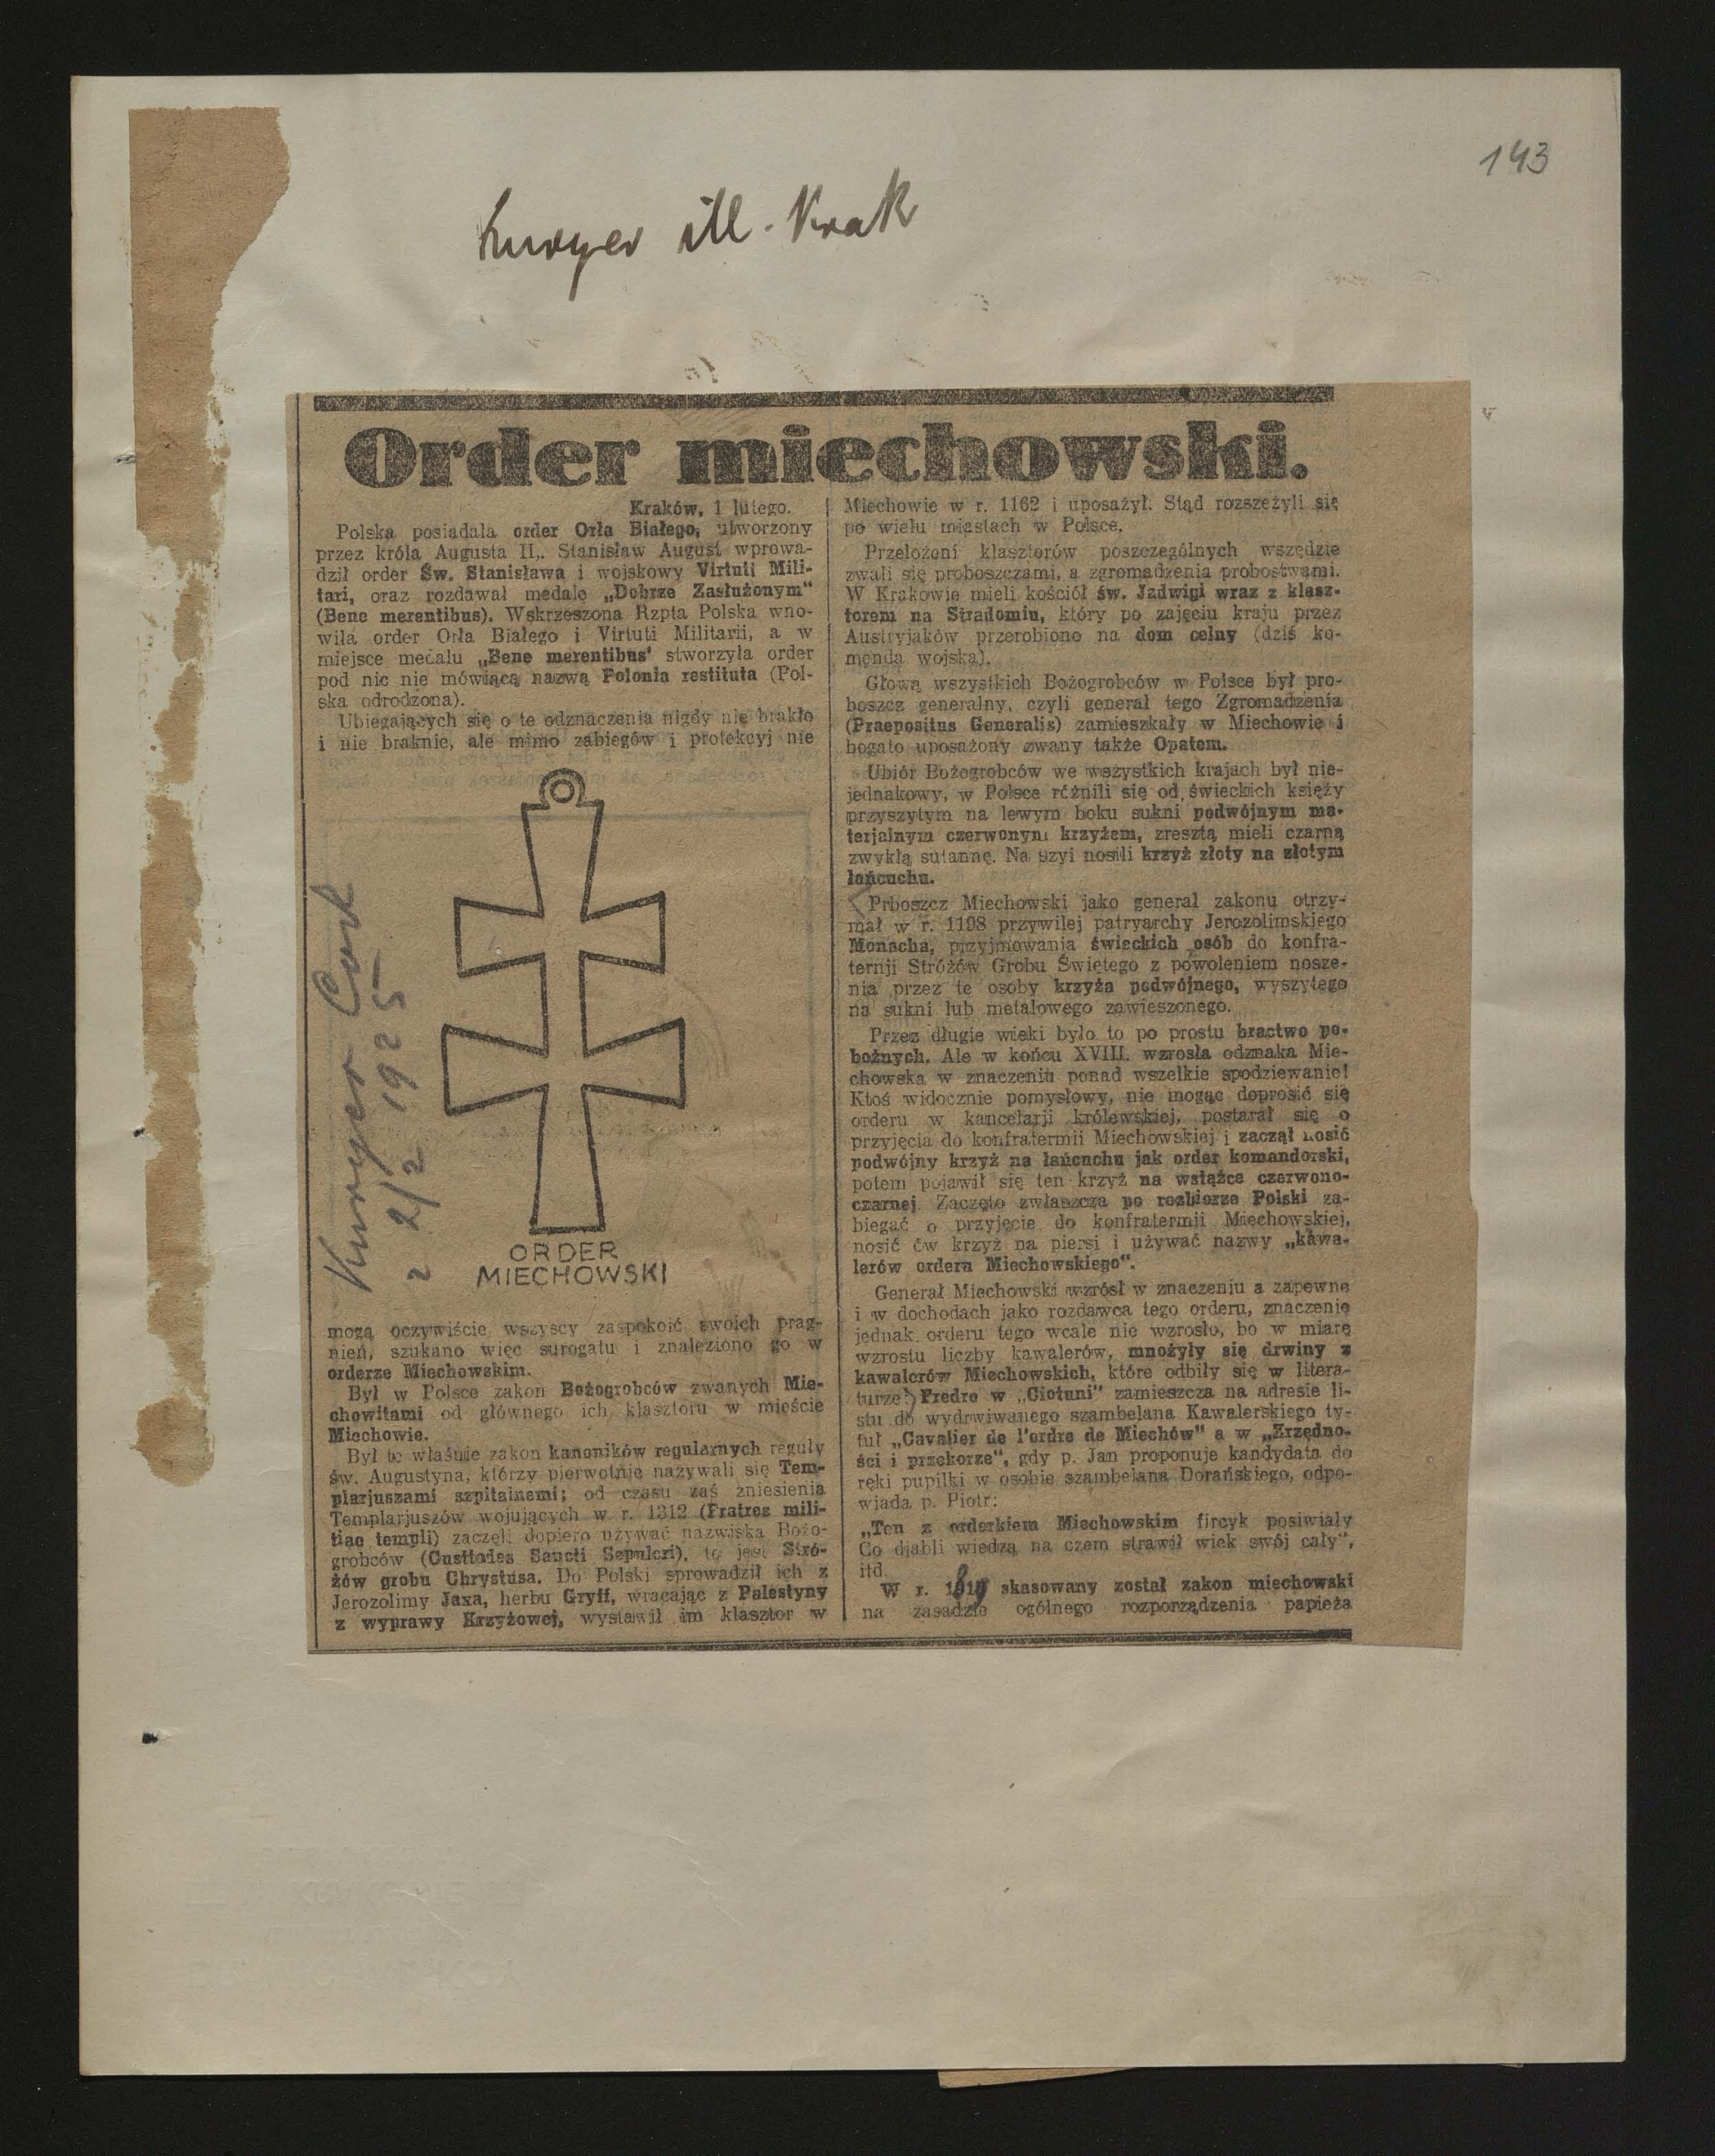 143
Kuryer ill. Krak
Order miechowski.
Kraków, 1 lutego.
Polska posiadała order Orła Białego, utworzony
przez króla Augusta II,. Stanisław August wprowa-
dził order Św. Stanisława i wojskowy Virtuti Mili-
tari, oraz rozdawał medale „Dobrze Zasłużonym"
(Bene merentibus). Wskrzeszona Rzpta Polska wno-
wiła order Orła Białego i Virtuti Militarii, a w
miejsce medalu „Bene merentibus' stworzyła order
pod nic nie mówiącą nazwą Polonia restituta (Pol-
ska odrodzona).
Ubiegających się o te odznaczenia nigdy nie brakło
i nie braknie, ale mimo zabiegów i protekcyj nie
Kuryer Codz
2 2/2 1925
ORDER
MIECHOWSKI
mogą oczywiście wszyscy zaspokoić swoich prag-
nień, szukano więc surogatu i znaleziono go w
orderze Miechowskim.
Był w Polsce zakon Bożogrobców zwanych Mie-
chowitami od głównego ich klasztoru w mieście
Miechowie.
Był to właśnie zakon kanoników regularnych reguły
św. Augustyna, którzy pierwotnie nazywali się Tem-
plarjuszami szpitalnemi; od czasu zaś zniesienia
Templarjuszów wojujących w r. 1312 (Fratres mili-
tiae templi) zaczęli dopiero używać nazwiska Bożo-
grobców (Custodes Sancti Sepulcri), to jest Stró-
żów grobu Chrystusa. Do Polski sprowadził ich z
Jerozolimy Jaxa, herbu Gryff, wracając z Palestyny
z wyprawy Krzyżowej, wystawił im klasztor w
Miechowie w r. 1162 i uposażył. Stąd rozszeżyli się
po wielu miastach w Polsce.
Przełożeni klasztorów poszczególnych wszędzie
zwali się proboszczami, a zgromadzenia probostwami.
W Krakowie mieli kościół św. Jadwigi wraz z klasz-
torem na Stradomiu, który po zajęciu kraju przez
Austryjaków przerobiono na dom celny (dziś ko-
menda wojska).
Głową wszystkich Bożogrobców w Polsce był pro-
boszcz generalny, czyli generał tego Zgromadzenia
(Praepositus Generalis) zamieszkały w Miechowie i
bogato uposażony zwany także Opatem.
Ubiór Bożogrobców we wszystkich krajach był nie-
jednakowy, w Polsce różnili się od świeckich księży
przyszytym na lewym boku sukni podwójnym ma-
terjalnym czerwonym krzyżem, zresztą mieli czarną
zwykłą sutannę. Na szyi nosili krzyż złoty na złotym
łańcuchu.
Prboszcz Miechowski jako generał zakonu otrzy-
mał w r. 1198 przywilej patryarchy Jerozolimskiego
Monacha, przyjmowania świeckich osób do konfra-
ternji Stróżów Grobu Świętego z powoleniem nosze-
nia przez te osoby krzyża podwójnego, wyszytego
na sukni lub metalowego zawieszonego.
Przez długie wieki było to po prostu bractwo po-
bożnych. Ale w końcu XVIII. wzrosła odznaka Mie-
chowska w znaczeniu ponad wszelkie spodziewanie!
Ktoś widocznie pomysłowy, nie mogąc doprosić się
orderu w kancelarji królewskiej, postarał się o
przyjęcia do konfratermii Miechowskiej i zaczął nosić
podwójny krzyż na łańcuchu jak order komandorski,
potem pojawił się ten krzyż na wstążce czerwono-
czarnej. Zaczęto zwłaszcza po rozbiorze Polski za-
biegać o przyjęcie do konfratermji Miechowskiej,
nosić ów krzyż na piersi i używać nazwy „kawa-
lerów ordera Miechowskiego".
Generał Miechowski wzrósł w znaczeniu a zapewne
i w dochodach jako rozdawca tego orderu, znaczenie
jednak orderu tego wcale nie wzrosło, bo w miarę
wzrostu liczby kawalerów, mnożyły się drwiny z
kawalerów Miechowskich, które odbiły się w litera-
turze! Fredro w „Ciotuni" zamieszcza na adresie li-
stu do wydrwiwanego szambelana Kawalerskiego ty-
tuł „Cavalier de l'ordre de Miechów" a w „Zrzędno-
ści i przekorze", gdy p. Jan proponuje kandydata do
ręki pupilki w osobie szambelana Dorańskiego, odpo-
wiada p. Piotr:
„Ten z orderkiem Miechowskim fircyk posiwiały
Co djabli wiedzą na czem strawił wiek swój cały",
itd.
W r. 1819 skasowany został zakon miechowski
na zasadzie ogólnego rozporządzenia papieża